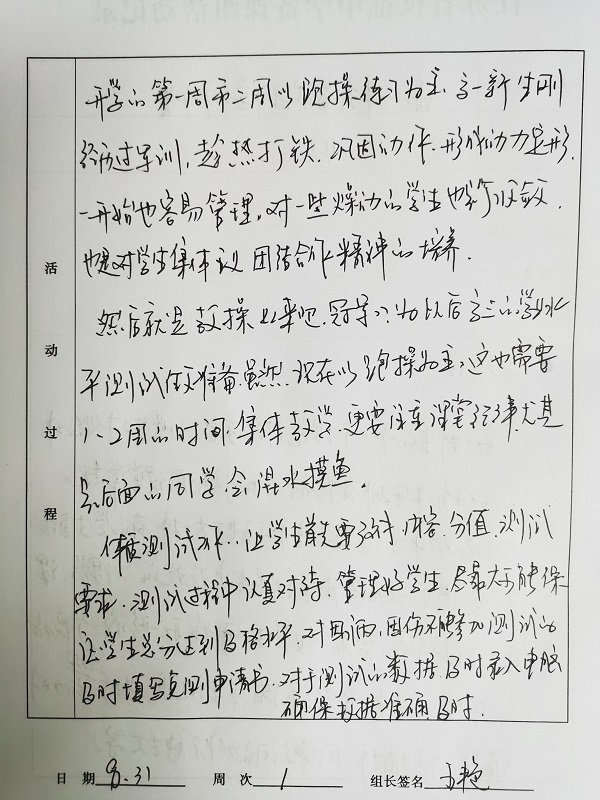 开学的第一周第二周以跑操练习为主.高一新生刚
经历过军训,趁热打铁.巩固动作.形成动力定形.
一开始也容易管理,对一些燥动的学生也等于收敛.
也是对学生集体主义 团结合作精神的培养.
然后就是教操 为以后高三的学业水
平测试任务准备.虽然现在以跑操为主,这也需要
1-2周的时间.集体教学.更要注重课堂纪律尤其
是后面的同学会混水摸鱼.
体质测试工作..让学生首先要 内容.分值.测试
要求.测试过程中认真对待.管理好学生.尽最大可能保
证学生总分达到及格水平.对因病,因伤不能参加测试的
及时填写免测申请书.对于测试的数据及时录入电脑
确保数据准确及时.
活动过程
日期 8.31 周次 1 组长签名 王艳